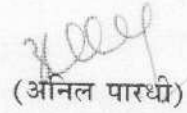 (अनिल पारधी)